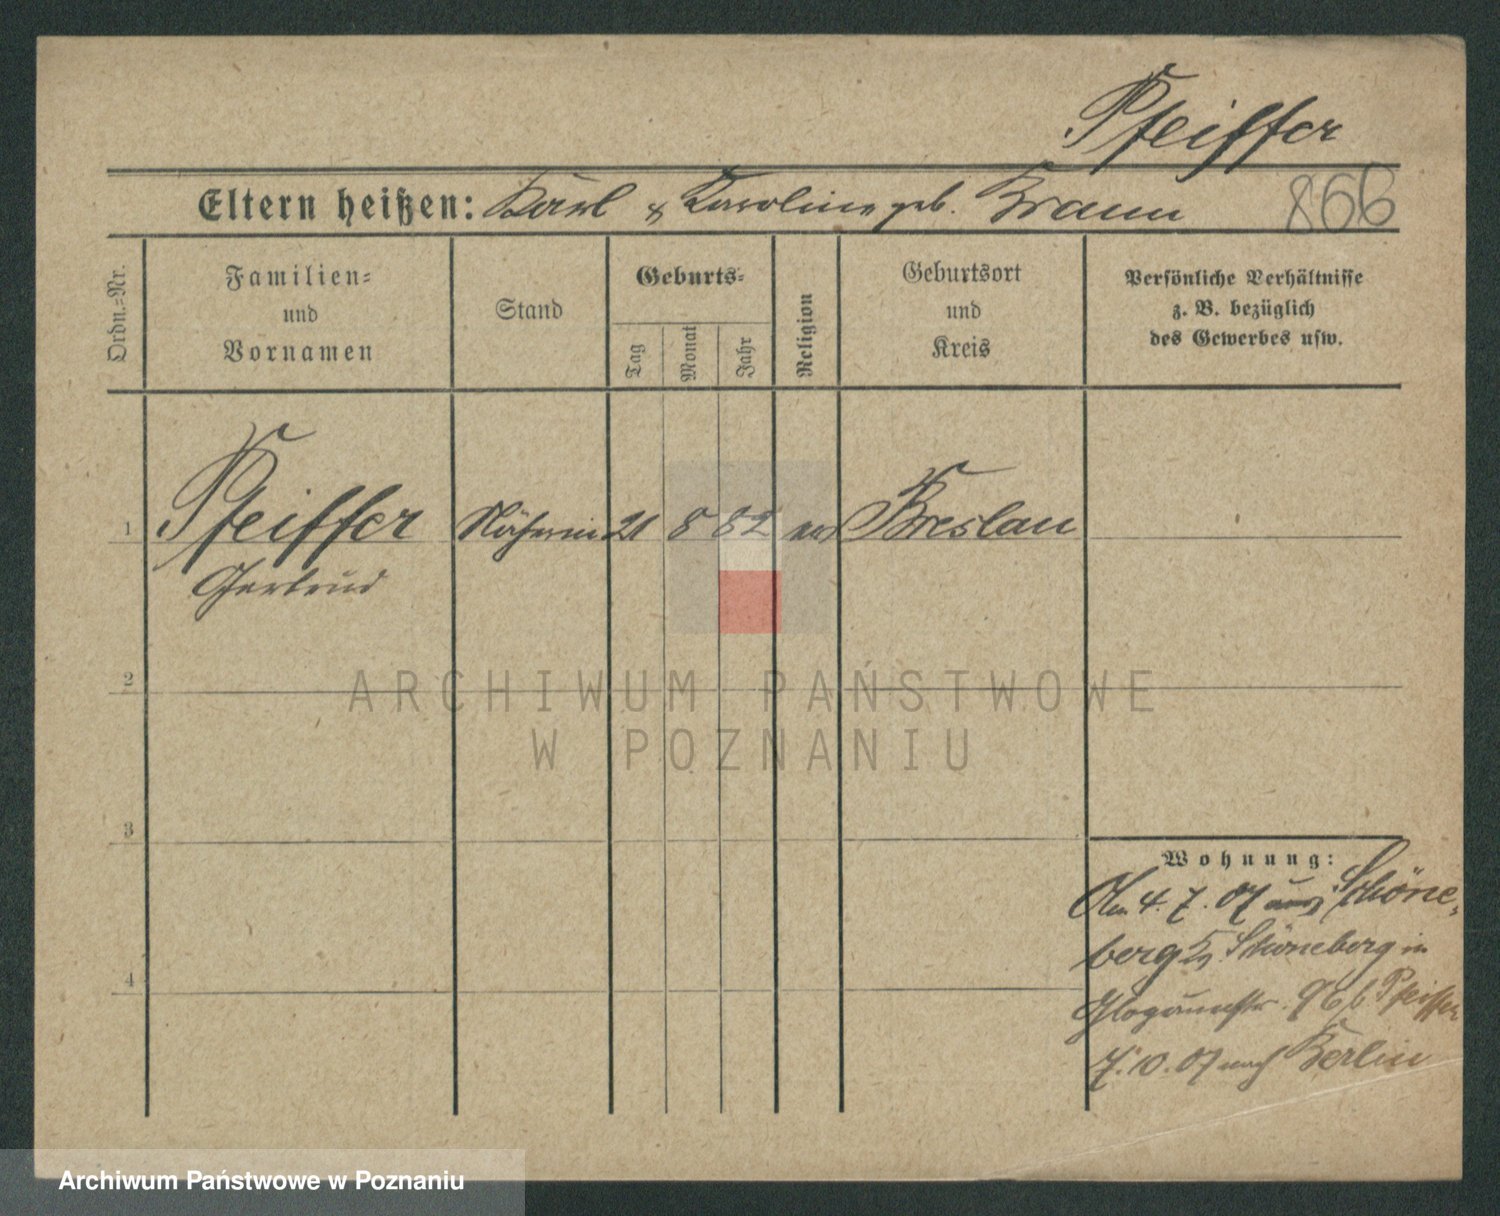 Pfeiffer
Eltern heißen: Karl & Karoline geb. Braun 866
Ordn.=Nr.
Familien=
und
Vornamen
Stand
Geburts=
Tag
Monat
Jahr
Religion
Geburtsort
und
Kreis
Persönliche Verhältnisse
z. B. bezüglich
des Gewerbes usw.
1 Pfeiffer Näherin 21 8 82 ev Breslau
Gertrud
2
ARCHIWUM PAŃSTWOWE
W POZNANIU
3
Wohnung:
Am 4. 7. 07 aus Schöne-
berg Kr. Schöneberg in
Glogauerstr. 96 b Pfeiffer
4
7. 10. 07 nach Berlin
Archiwum Państwowe w Poznaniu